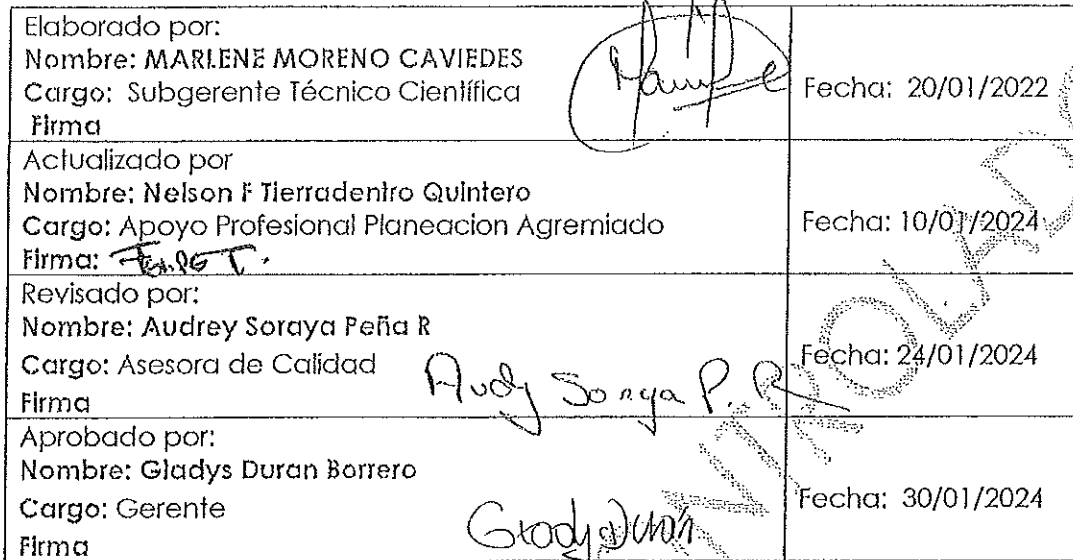 Elaborado por:
Nombre: MARLENE MORENO CAVIEDES
Cargo: Subgerente Técnico Científica
Firma
Fecha: 20/01/2022
Actualizado por
Nombre: Nelson F Tierradentro Quintero
Cargo: Apoyo Profesional Planeacion Agremiado
Firma:
Fecha: 10/01/2024
Revisado por:
Nombre: Audrey Soraya Peña R
Cargo: Asesora de Calidad
Firma Audy Soraya P. R
Fecha: 24/01/2024
Aprobado por:
Nombre: Gladys Duran Borrero
Cargo: Gerente
Firma
Fecha: 30/01/2024